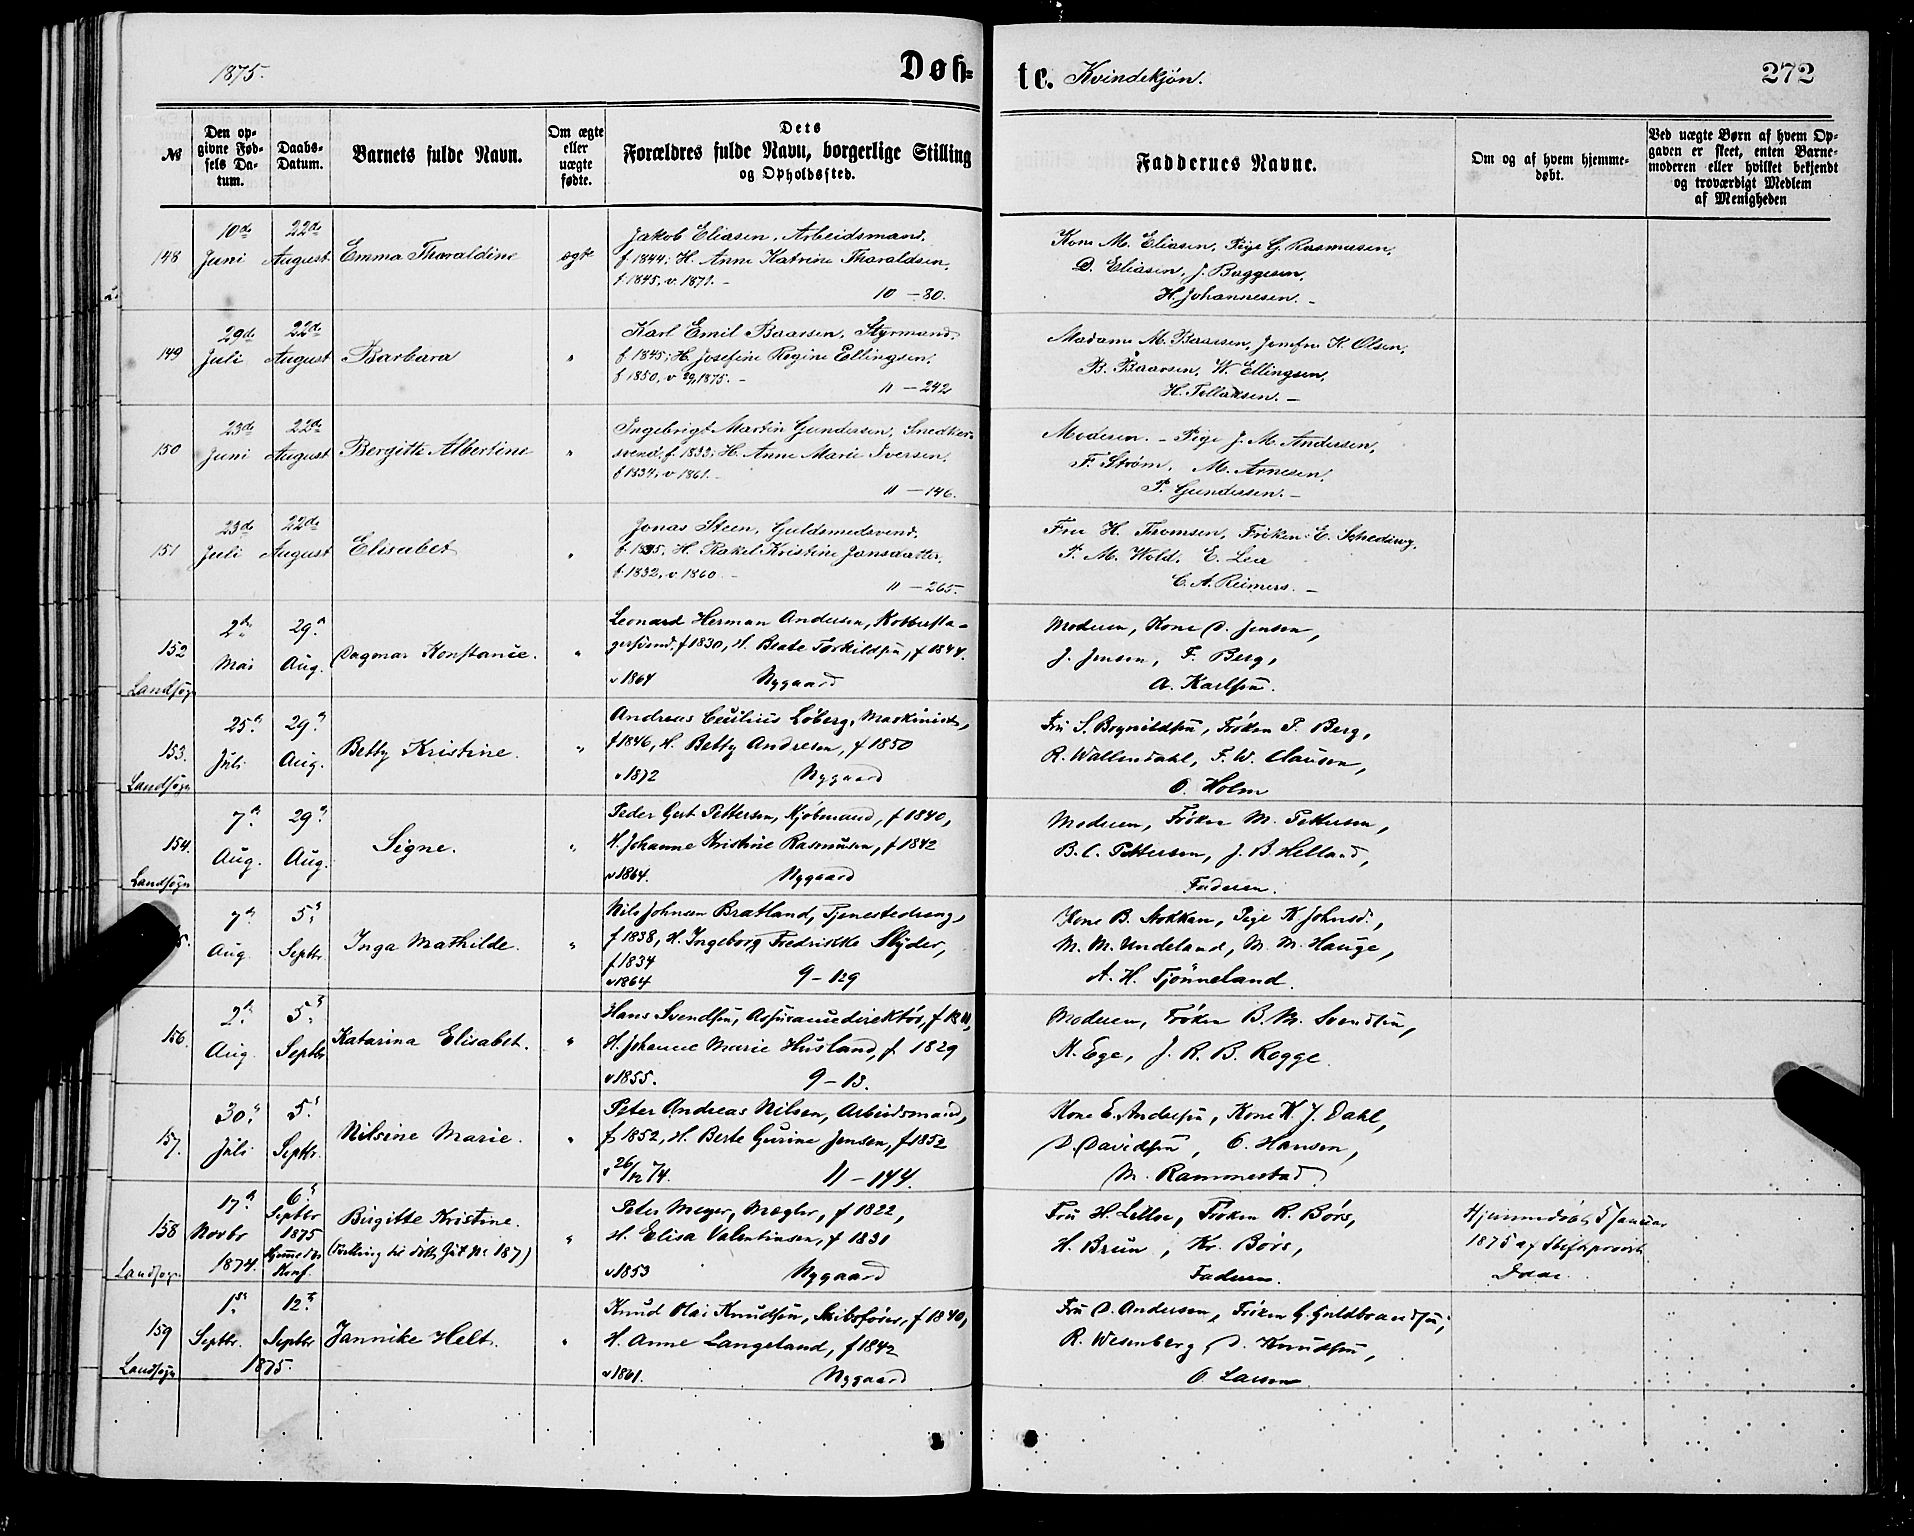 1875.
Døb=
te. Kvindekjön.
272
№
Den op-
givne Fød-
sels Da-
tum.
Daabs-
Datum.
Barnets fulde Navn.
Om ægte
eller
uægte
fødte.
Dets
Forældres fulde Navn, borgerlige Stilling
og Opholdssted.
Faddernes Navne.
Om og af hvem hjemme-
døbt.
Ved uægte Børn af hvem Op-
gaven er skeet, enten Barne-
moderen eller hvilket bekjendt
og troværdigt Medlem
af Menigheden
148
10de
Juni
22de
August
Emma Tharaldine
ægte
Jakob Eliasen, Arbeidsmand,
f 1844; H. Anne Katrine Tharaldsen,
f. 1845, v. 1871. –
10 – 80.
Kone M. Eliasen, Pige G. Rasmussen,
D. Eliasen, J. Baggesen,
H. Johannesen. –
149
29de
Juli
22de
August
Barbara
"
Karl Emil Baarsen, Styrmand,
f 1845; H. Josefine Regine Ellingsen,
f 1850, v 1875. –
11 – 242
Madame M. Baarsen, Jomfru K. Olsen,
B. Baarsen, W. Ellingsen,
H. Tellaksen. –
150
23de
Juni
22de
August
Bergitte Albertine
"
Ingebrigt Martin Gundersen, Snedker-
svend, f. 1833; H. Anne Marie Iversen,
f. 1834, v 1861. –
11 – 146.
Moderen. – Pige J. M. Andersen,
F. Strøm, M. Arnesen,
P. Gundersen. –
151
23de
Juli
22de
August
Elisabet
"
Jonas Steen, Guldsmedsvend,
f. 1835, H. Rakel Kristine Jansdatter,
f. 1832, v 1860. –
11 – 265.
Fru H. Thomsen, Frøken E. Scheding,
P. M. Wold, E. Lea
C. A. Reimers. –
152
Landsogn
2de
Mai
29de
Aug.
Dagmar Konstance.
"
Leonard Herman Andersen, Kobbersla-
gersvend, f 1830, H. Beate Torkildsen, f 1844.
v 1864 Nygaard
Moderen, Kone D. Jensen,
J. Jensen, F. Berg,
A. Karlsen.
153.
Landsogn
25de
Juli
29de
Aug.
Betty Kristine.
"
Andreas Cecilius Loberg, Maskinist,
f 1846, H. Betty Andresen, f 1850
v 1872 Nygaard
Fru S. Bognildsen, Frøken P. Berg,
R. Wallendahl, F. W. Clausen,
O. Holm
154.
Landsogn
7de
Aug.
29de
Aug.
Signe.
"
Peder Gert Pettersen, Kjøbmand, f 1840,
H. Johanne Kristine Rasmusen, f 1842
v 1864. Nygaard
Moderen, Frøken M. Pettersen,
B. C. Pettersen, J. B. Helland,
Faderen.
7de
Aug.
5te
Septbr
Inga Mathilde.
"
Nils Johnsen Bratland, Tjenestedreng,
f 1838, H. Ingeborg Fredrikke Skyder,
f 1834
v 1864 9 – 129
Kone B. Stokkan, Pige K Johnsd.,
M. M. Undeland, M. M. Hauge,
A. H. Tjønneland.
156.
2de
Aug.
5te
Septbr
Katarina Elisabet.
"
Hans Svendsen, Assurancedirektør,
H. Johanne Marie Husland, f. 1829
v 1855. 9 – 13.
Moderen, Frøken B. M. Svendsen,
K. Ege, J. R. B. Rogge
157.
30te
Juli
5te
Septbr.
Nilsine Marie.
"
Peter Andreas Nilsen, Arbeidsmand,
f 1852, H. Berte Gurine Jensen, f 1852
v 26/12 74. 11 – 144.
Kone E. Andresen, Kone K. J. Dahl,
D. Davidsen, O. Hansen,
M. Rammestad.
158
Landsogn
17de
Novbr
1874.
6te
Septbr
1875
Hjemmedøbs
Konf.
Birgitte Kristine.
"
Peter Meyer, Mægler, f 1822,
H. Elisa Valentinsen, f 1831
v 1853 Nygaard
Fru H. Lellve, Frøken R. Børs,
H. Brun, Kr. Børs,
Faderen.
Hjemmedøbt 5 Januar
1875 af Stiftsprovst
Daae.
159
Landsogn
1ste
Septbr.
12te
Septbr
1875.
Jannike Helt.
"
Knud Olai Knudsen, Skibsfører, f 1840,
H. Anne Langeland, f 1842
v 1861. Nygaard
Fru D. Andersen, Frøken G. Guldbrandsen,
R. Wesenberg, D. Knudsen,
O. Larsen